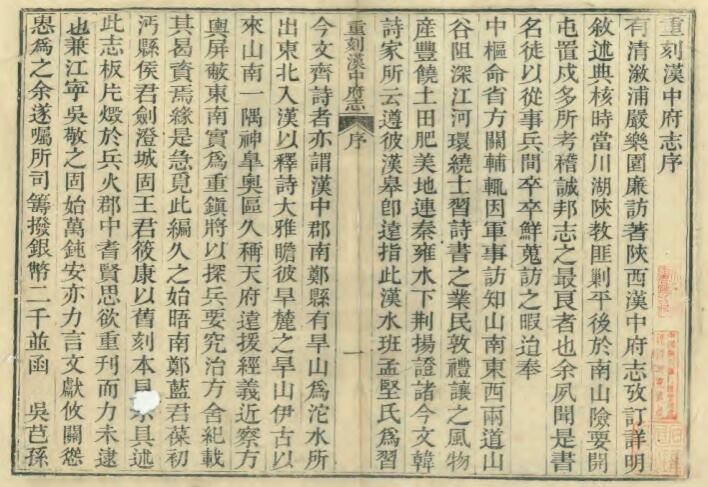 重刻漢中府志序
有清漵浦嚴樂園廉訪著陝西漢中府志攷訂詳明
敘述典核時當川湖陝教匪剿平後於南山險要開
屯置戍多所考稽誠邦志之最良者也余夙聞是書
名徒以從事兵間卒卒鮮蒐訪之暇迨奉
中樞命省方關輔輒因軍事訪知山南東西兩道山
谷阻深江河環繞士習詩書之業民敦禮讓之風物
産豐饒土田肥美地連秦雍水下荆揚證諸今文韓
詩家所云遵彼漢皋卽遠指此漢水班孟堅氏爲習
重刻漢中府志 序 一
今文齊詩者亦謂漢中郡南鄭縣有旱山爲沱水所
出東北入漢以釋詩大雅瞻彼旱麓之旱山伊古以
來山南一隅神皐奧區久稱天府遠援經義近察方
輿屏蔽東南實爲重鎭將以探兵要究治方舍紀載
其曷資焉緣是急覓此編久之始晤南鄭藍君葆初
沔縣侯君劍澄城固王君筱康以舊刻本見具述
此志板片燬於兵火郡中耆賢思欲重刊而力未逮
也兼江寧吳敬之固始萬鈍安亦力言文獻攸關慫
恿爲之余遂囑所司籌撥銀幣二千並函 吳芑孫